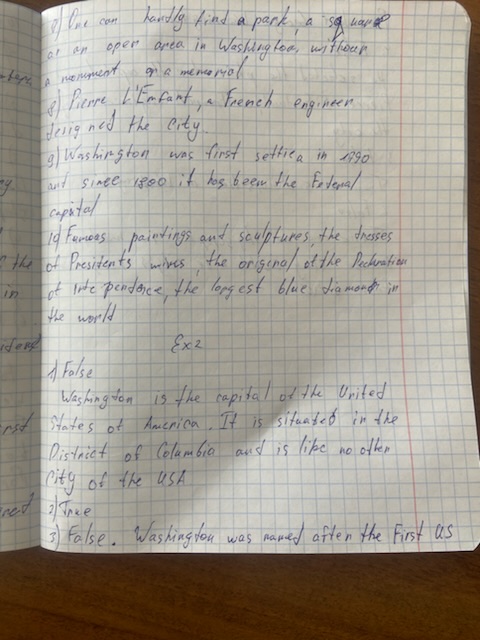 7) One can hardly find a park, a square
or an open area in Washington, without
a monument or a memorial
8) Pierre L'Enfant, a French engineer
designed the City.
9) Washington was first settled in 1790
and since 1800 it has been the Federal
capital
10) Famous paintings and sculptures, the dresses
of Presidents wives, the original of the Declaration
of Independence, the largest blue diamond in
the world
Ex 2
1) False
Washington is the capital of the United
States of America. It is situated in the
District of Columbia and is like no other
City of the USA
2) True
3) False. Washington was named after the First US